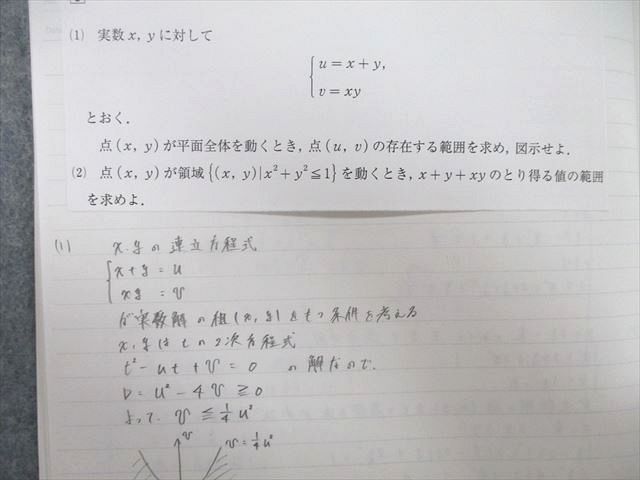 (1) 実数 x, y に対して
u = x + y,
v = xy
とおく.
点 (x, y) が平面全体を動くとき, 点 (u, v) の存在する範囲を求め, 図示せよ.
(2) 点 (x, y) が領域 {(x, y)|x²+y²≦1} を動くとき, x+y+xy のとり得る値の範囲
を求めよ.
(1) x, y の連立方程式
x+y = u
xy = v
が実数解の組(x, y)をもつ条件を考える
x, y は t の2次方程式
t² - ut + v = 0 の解なので.
D = u² - 4v ≧ 0
よって. v ≦ 1/4 u²
v v = 1/4 u²